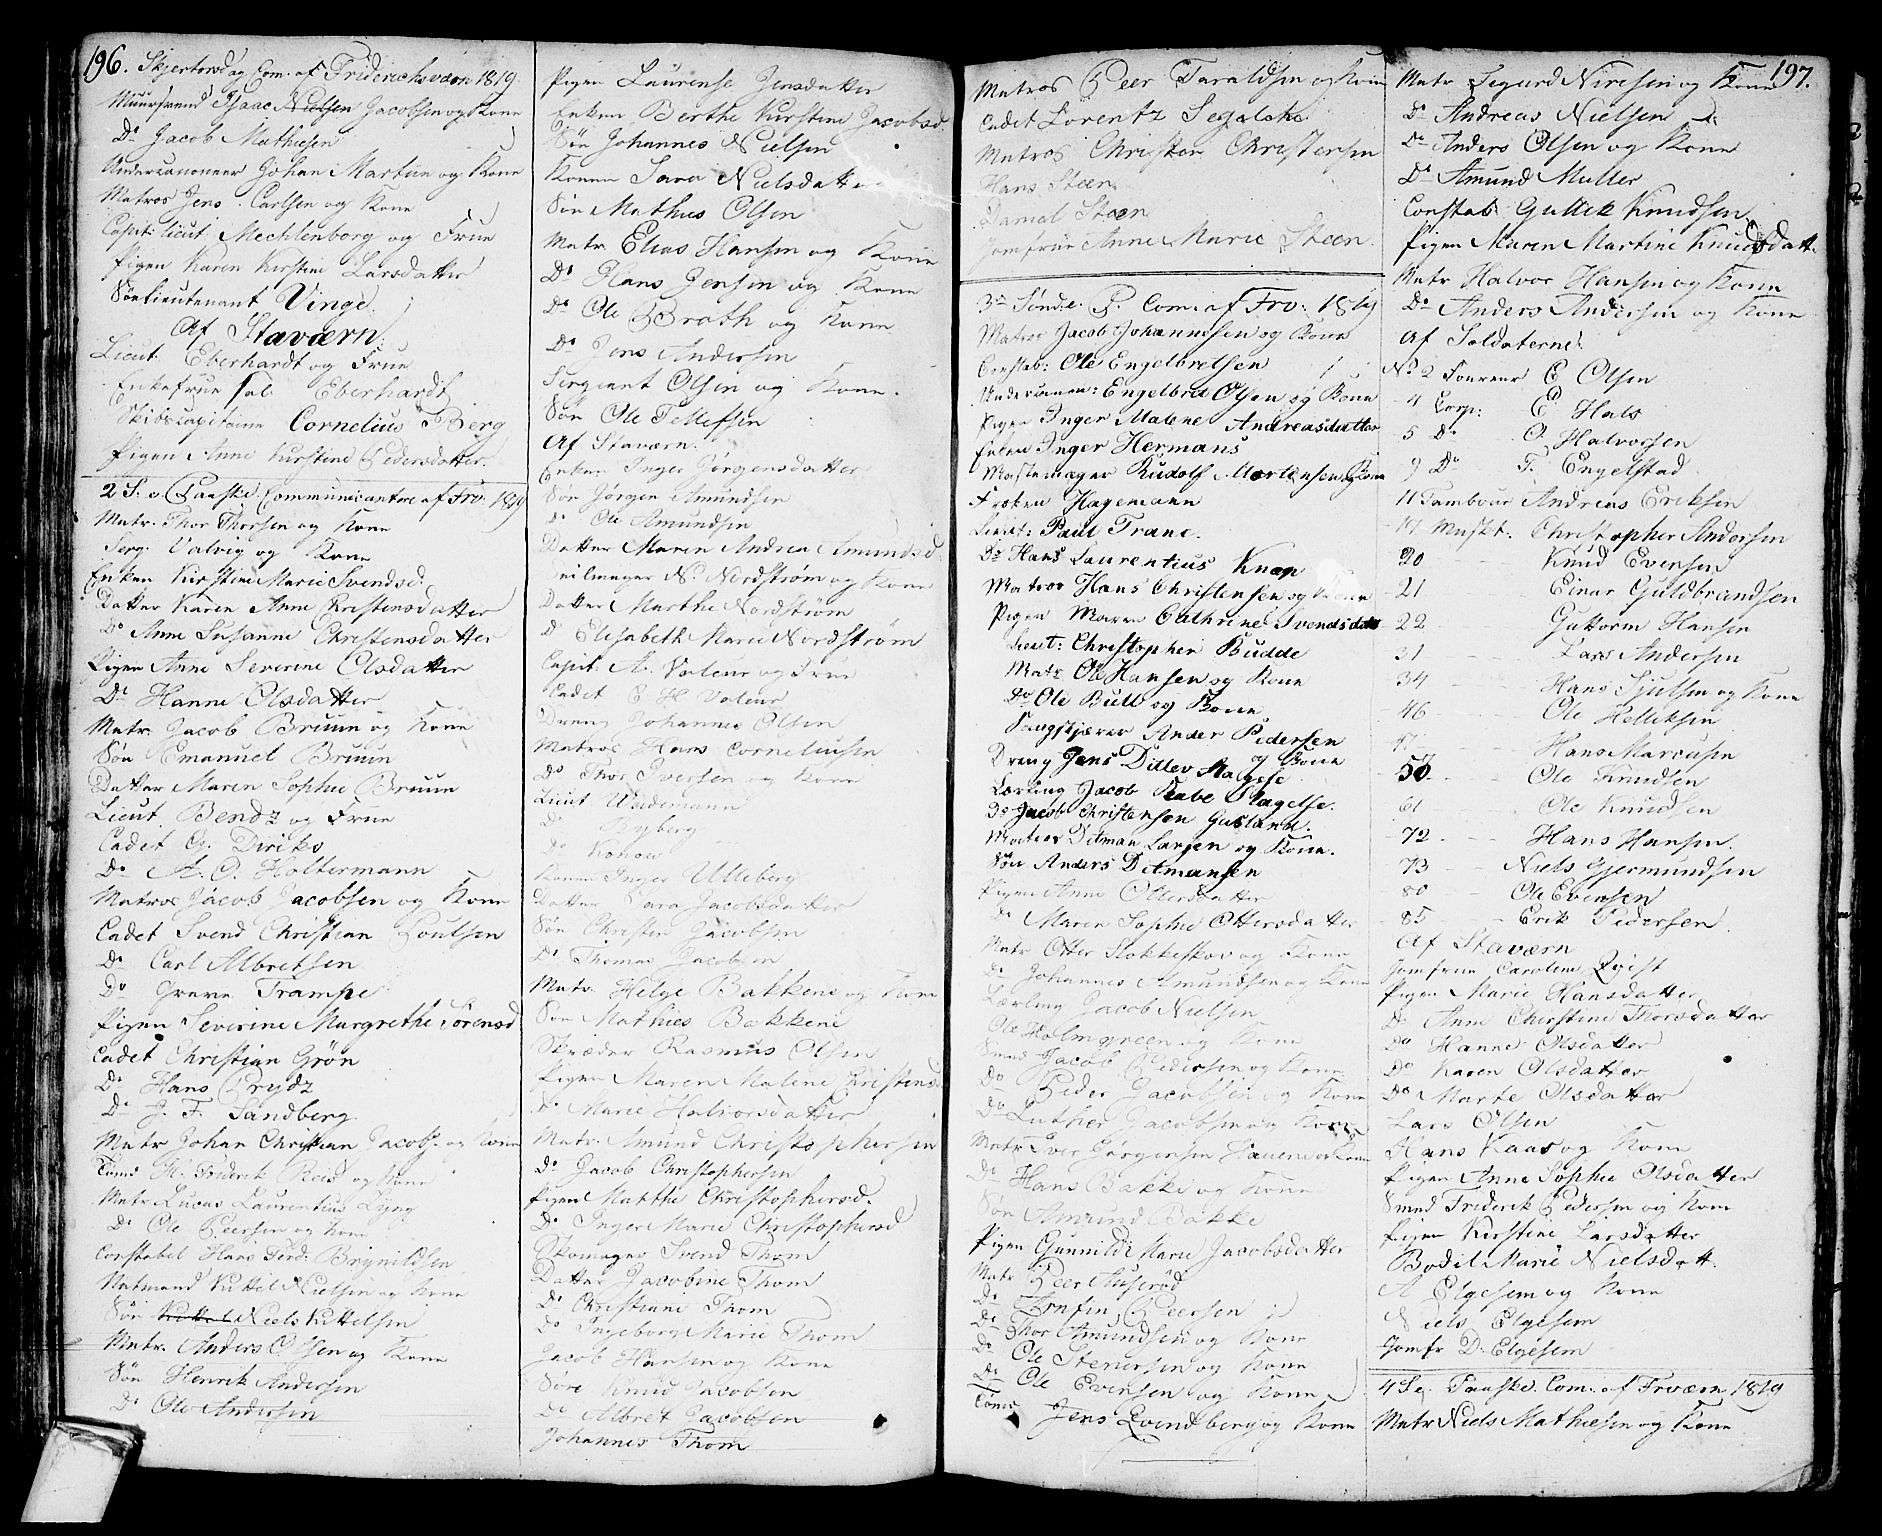 196. Skjertorsdag Com. af Friderichsværn 1819.
Muursvend Isaac Nielsen Jacobsen og Kone
Do Jacob Mathiesen
Undercanoneer Johan Martin og Kone
Matros Jens Carlsen og Kone
Capit: lieut: Mechlenborg og Frue
Pigen Karen Kirstine Larsdatter
Sølieutenant Vinge
Af Staværn:
Lieut. Eberhardt og Frue
Enkefrue sal. Eberhardt
Skibscapitaine Cornelius Berg
Pigen Anne Kirstine Pedersdatter.
2 S. e. Paaske Communicantere af Frv: 1819
Matr. Thor Thorsen og Kone
Serg. Valvig og Kone
Enken Kirstine Marie Svendsd.
Datter Karen Anne Christensdatter
Do Anne Susanne Christensdatter
Pigen Anne Severine Olsdatter
Do Hanne Olsdatter
Matr. Jacob Bruun og Kone
Søn Emanuel Bruun
Datter Maren Sophie Bruun
Lieut. Bendz og Frue
Cadet G. Diriks
Do A. O. Holtermann
Matros Jacob Jacobsen og Kone
Cadet Svend Christian Poulsen
Do Carl Albretsen
Do Greve Trampe
Pigen Severine Margrethe Sørensd
Cadet Christian Grøn
Do Hans Prydz
Do J. F. Sandberg
Matr Johan Christian Jacobs. og Kone
Tømd M. Friderik Reis og Kone
Matr. Lucas Laurentius Lyng
Do Ole Peersen og Kone
Constabel Hans Ferd: Brynildsen
Matmand Kittel Nielsen og Kone
Søn Kittel Niels Kittelsen
Matr. Anders Olsen og Kone
Søn Henrik Andersen
Do Ole Andersen
Pigen Laurense Jensdatter
Enken Berthe Kirstine Jacobsd.
Søn Johannes Nielsen
Konen Sara Nielsdatter
Søn Mathies Olsen
Matr. Elias Hansen og Kone
Do Hans Jensen og Kone
Do Ole Broth og Kone
Do Jens Andersen
Sergiant Olsen og Kone.
Søn Ole Tellefsen
Af Staværn.
Enken Inger Jørgensdatter
Søn Jørgen Amundsen
Do Ole Amundsen
Datter Maren Andrea Amundsd.
Seilmager N. Nordstrøm og Kone
Datter Marthe Nordstrøm
Do Elisabeth Marie Nordstrøm
Capit. A. Valeur og Frue
Cadet C. H Valeur
Dreng Johannes Olsen
Matros Hans Corneliusen
Do Thor Iversen og Kone
Lieut Wedemann
Do Ryberg
Do Konow
Konen Inger Ulleberg
Datter Sara Jacobsdatter
Søn Christen Jacobsen
Do Thomas Jacobsen
Matr. Helge Bakkene og Kone
Søn Mathies Bakkene
Skræder Rasmus Olsen
Pigen Maren Malene Christensd.
Do Marie Halvorsdatter
Matr. Amund Christophersen
Do Jacob Christophersen
Pigen Marthe Christophersd.
Do Inger Marie Christophersd
Skomager Svend Thom
Datter Jacobine Thom
Do Christiane Thom
Do Ingeborg Marie Thom
Jacob Hansen og Kone
Søn Knud Jacobsen
Do Albret Jacobsen
Johannes Thom
Matros Peer Taraldsen og Kone
Cadet Lorentz Segelcke
Matros Christen Christensen
Hans Steen
Daniel Steen
Jomfrue Anne Marie Steen.
3die Sønd. e. P. Com. af Frv: 1819
Matros Jacob Johannesen og Kone
Constab: Ole Engelbretsen
Undercanon: Engelbret Olsen og Kone
Pigen Inger Malene Andreasdatter
Enken Inger Hermans
Mastemager Rudolf Mortensen og Kone
Frøken Hagemann
Lieut: Paul Trane.
Do Hans Laurentius Knap
Matros Hans Christensen og Kone
Pigen Maren Cathrine Svendsdatt
Lieut: Christopher Budde
Matr Ole Hansen og Kone
Do Ole Bull og Kone
Saugskjærer Ander Pedersen
og Kone
Dreng Jens Ditlev Slagelse
Lærling Jacob Rabe Slagelse.
Do Jacob Christensen
Matros Ditman Larsen og Kone.
Søn Anders Ditmansen
Pigen Anne Ottersdatter
Do Maren Sophie Ottersdatter
Matr Otter Stokkeskov og Kone
Do Johannes Amundsen og Kone
Lærling Jacob Nielsen
Ole Holmgreen og Kone
Smed Jacob Pedersen og Kone
Do Peder Jacobsen og Kone
Do Luther Jacobsen og Kone
Matr Iver Jørgensen Hauene og Kone
Do Hans Bakke og Kone
Søn Amund Bakke
Pigen Gunnilde Marie Jacobsdatter
Matr Peer Auserød
Do Arnfin Peersen
Do Thor Amundsen og Kone
Do Ole Stenersen og Kone
Do Ole Evensen og Kone
Tømr Jens Qvendberg og Kone
197.
Matr Sigurd Niresen og Kone
Do Andreas Nielsen
Do Anders Olsen og Kone
Do Amund Muller
Constab: Gullik Knudsen
Pigen Maren Martine Knudsdatt.
Matr Halvor Hansen og Kone
Do Anders Andersen og Kone
Af Soldaterne:
No 2 Foureer E Olsen
4 Corp: E. Hals
5 Do O. Halvorsen
9 Do F. Engelstad
11 Tambour Andreas Eriksen
17 Muskt. Christopher Andersen
20 Knud Evensen
21 Einar Guldbrandsen
22 Guttorm Hansen
31 Lars Andersen
34 Hans Sjulsen og Kone
46 Ole Helliksen
47 Hans Marcusen
50 Ole Knudsen
61 Ole Knudsen
72 Hans Hansen.
73 Niels Gjermundsen
80 Ole Evensen
85 Erik Pedersen.
Af Staværn
Jomfrue Caroline Qvist
Pigen Marie Hansdatter
Do Anne Chirstine Thorsdatter
Do Hanne Olsdatter
Do Karen Olsdatter
Do Marte Olsdatter
Lars Olsen
Hans Kaas og Kone
Pigen Anne Sophie Olsdatter
Smed Friderik Pedersen og Kone
Pigen Kirstine Larsdatter
Bodil Marie Nielsdatt.
A Elgesem og Kone
Niels Elgesem
Jomfr D. Elgesem
4 S e. Paaske. Com. af Frværn 1819
Matr Niels Mathiesen og Kone